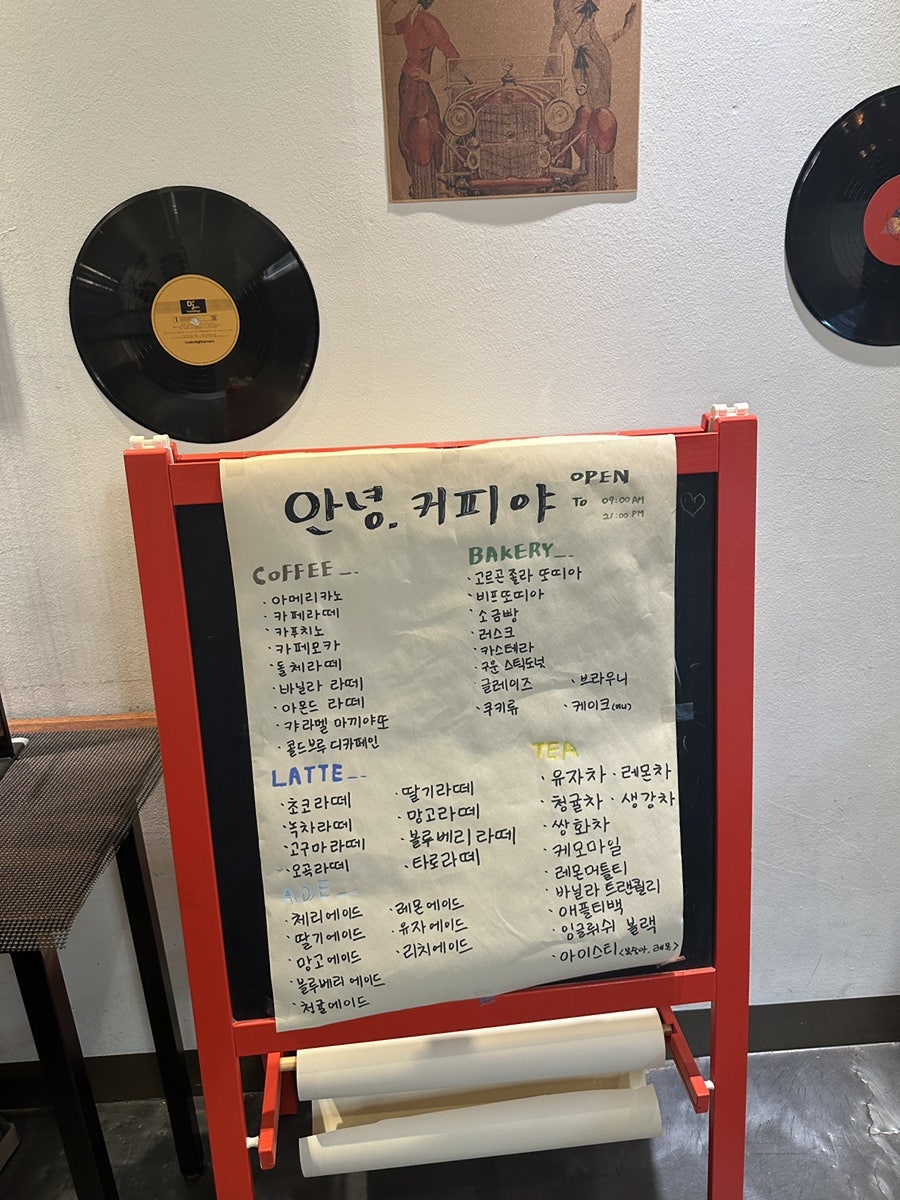 안녕. 커피야
OPEN
To 09:00 AM
21:00 PM
COFFEE
· 아메리카노
· 카페라떼
· 카푸치노
· 카페모카
· 돌체라떼
· 바닐라 라떼
· 아몬드 라떼
· 캬라멜 마끼야또
· 콜드브루 디카페인
BAKERY
· 고르곤졸라 또띠아
· 비프또띠아
· 소금빵
· 러스크
· 카스테라
· 구운 스틱도넛
· 글레이즈 · 브라우니
· 쿠키류 · 케이크
LATTE
· 초코라떼
· 녹차라떼
· 고구마라떼
· 오곡라떼
· 딸기라떼
· 망고라떼
· 블루베리라떼
· 타로라떼
ADE
· 체리에이드
· 딸기에이드
· 망고에이드
· 블루베리 에이드
· 청귤에이드
· 레몬에이드
· 유자에이드
· 리치에이드
TEA
· 유자차 · 레몬차
· 청귤차 · 생강차
· 쌍화차
· 케모마일
· 레몬머틀티
· 바닐라 트랜퀼리
· 애플티백
· 잉글쉬쉬 블랙
· 아이스티 <복숭아, 레몬>
Def